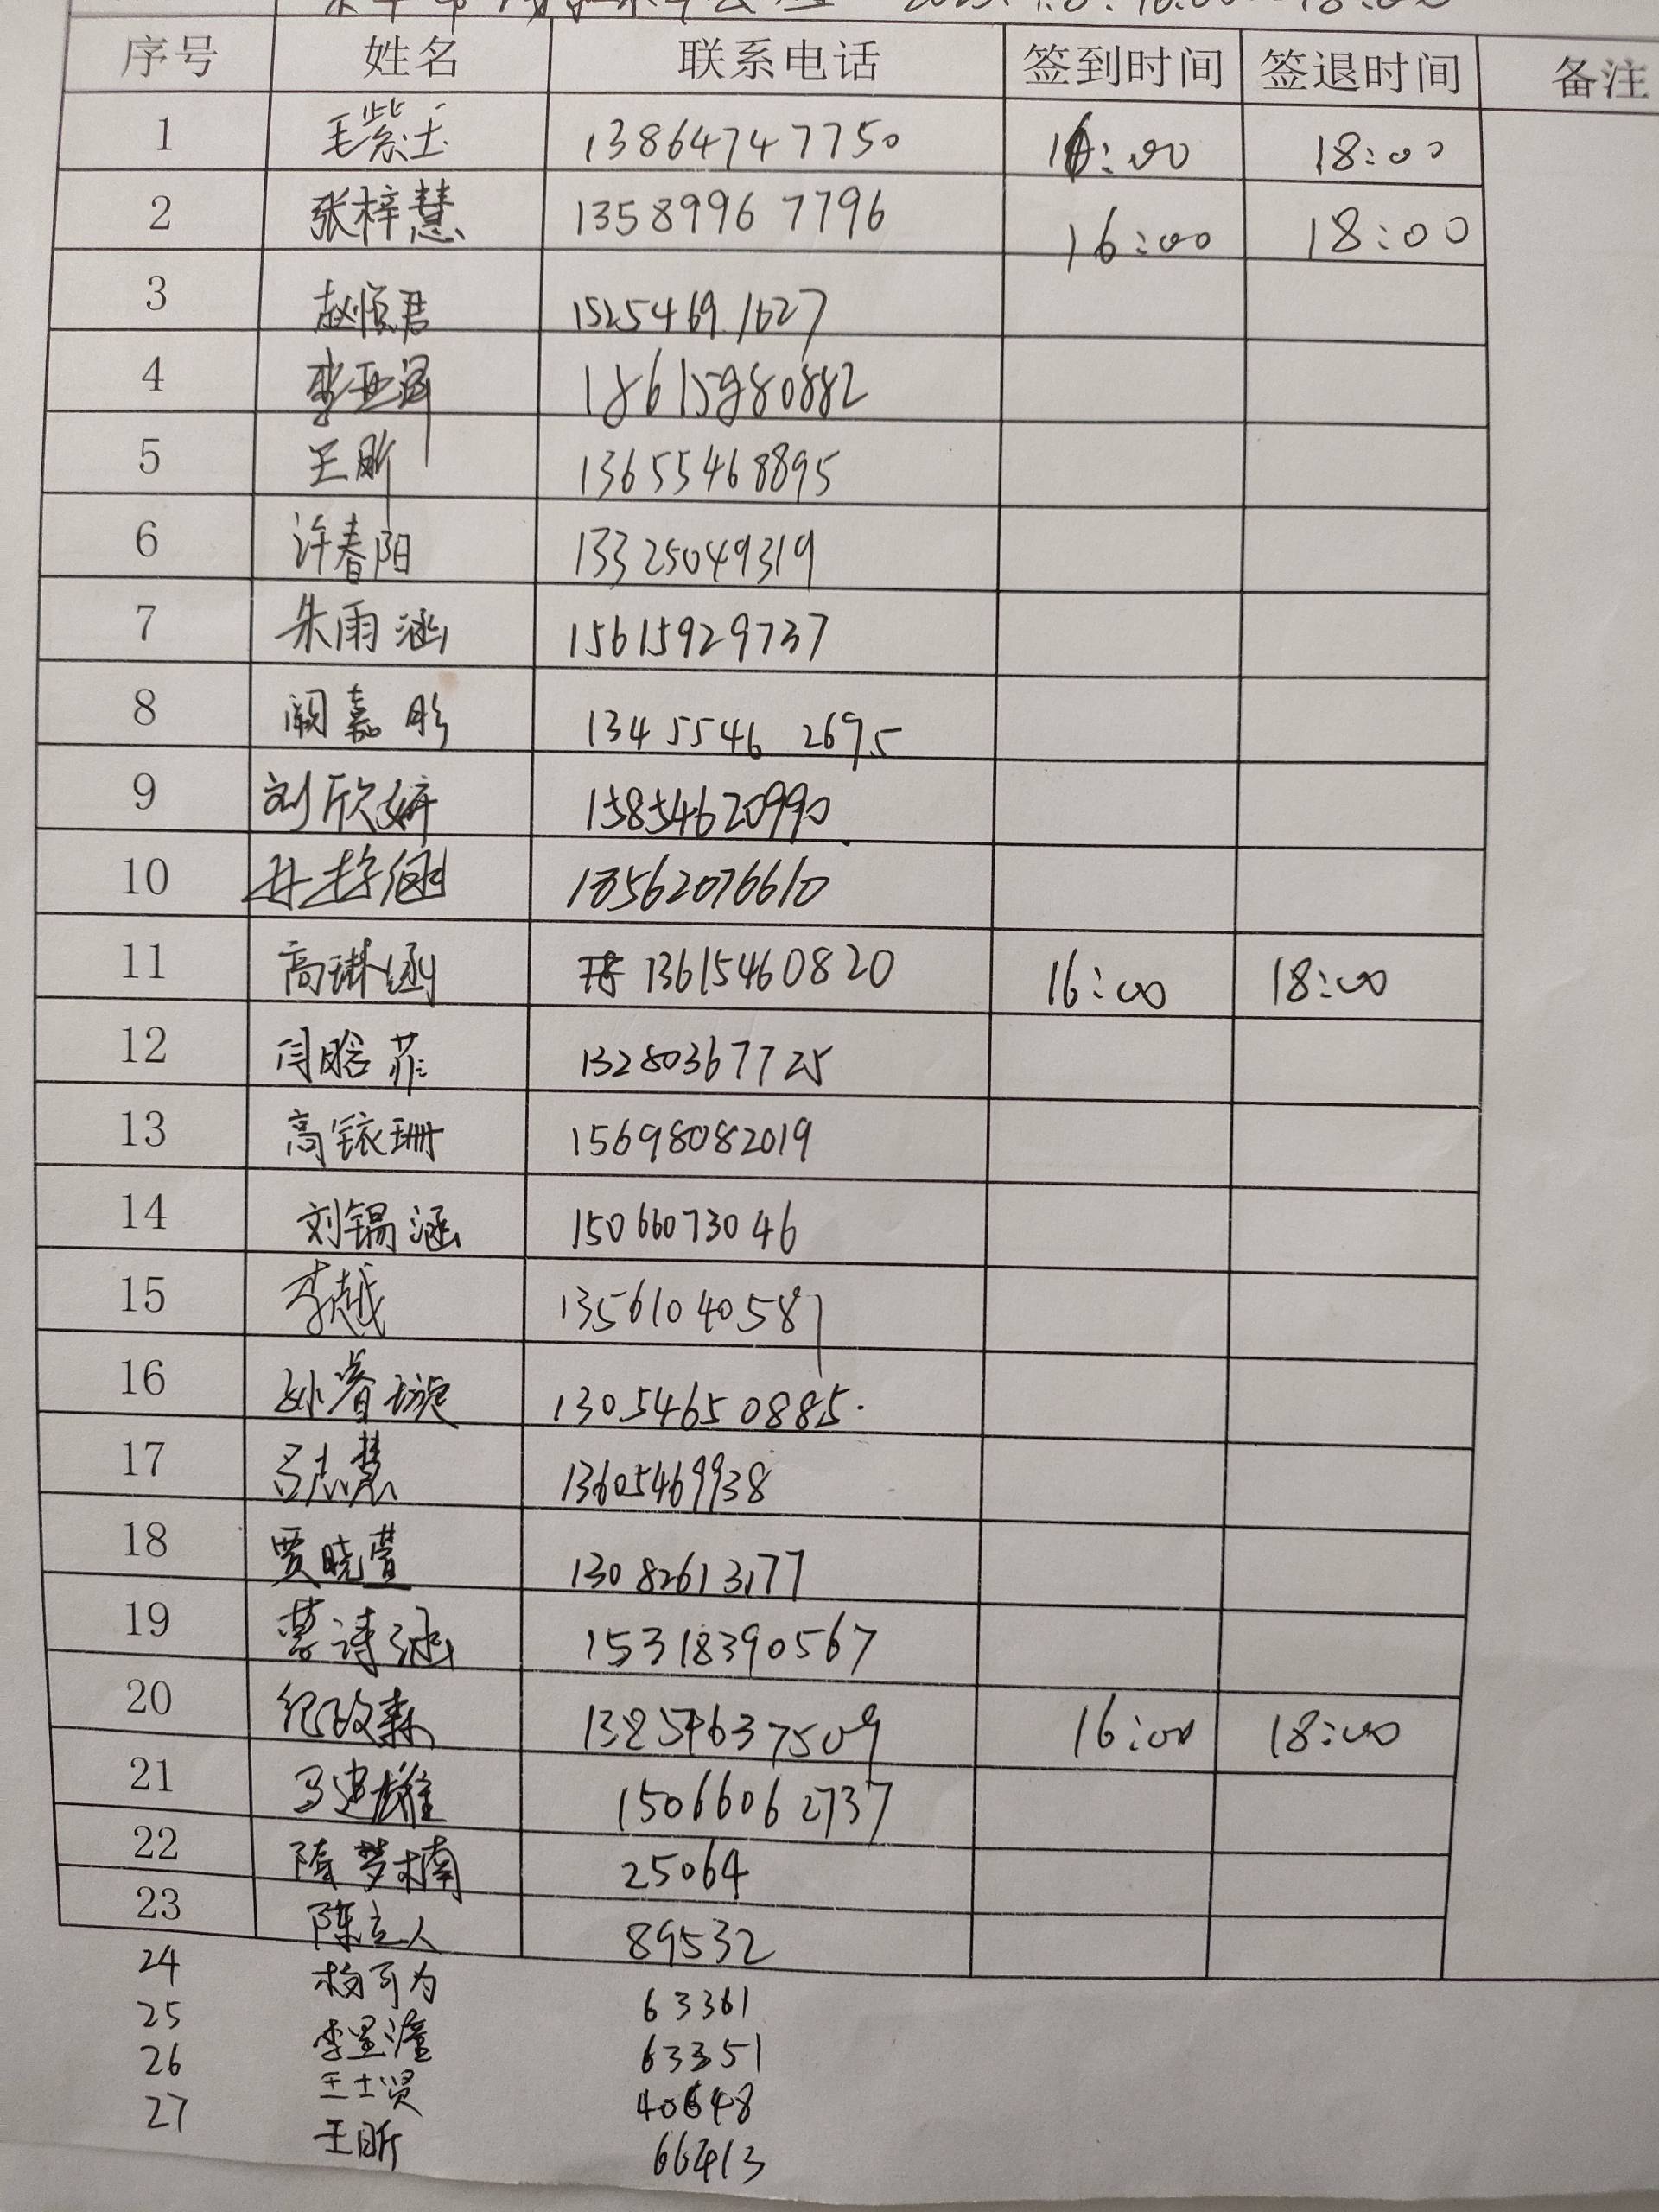 序号 姓名 联系电话 签到时间 签退时间 备注
1 毛紫玉 13864747750 16:00 18:00
2 张梓慧 13589967796 16:00 18:00
3 赵恒君 15254691627
4 李亚 18615980882
5 王昕 13655468895
6 许春阳 13325049319
7 朱雨涵 15615929737
8 阚嘉彤 13455462695
9 刘欣妍 15854620990
10 18562076610
11 高琳涵 13615460820 16:00 18:00
12 闫晗菲 13280367725
13 高铱珊 15698082019
14 刘锡涵 15066073046
15 李越 13561040587
16 孙睿璇 13054650885
17 吕志慧 13605469938
18 贾晓萱 13082613177
19 曹诗涵 15318390567
20 纪政霖 13854637509 16:00 18:00
21 马 15066062737
22 隋梦楠 25064
23 陈立人 89532
24 杨可为 63361
25 李星潼 63351
26 王士贤 40648
27 王昕 66413